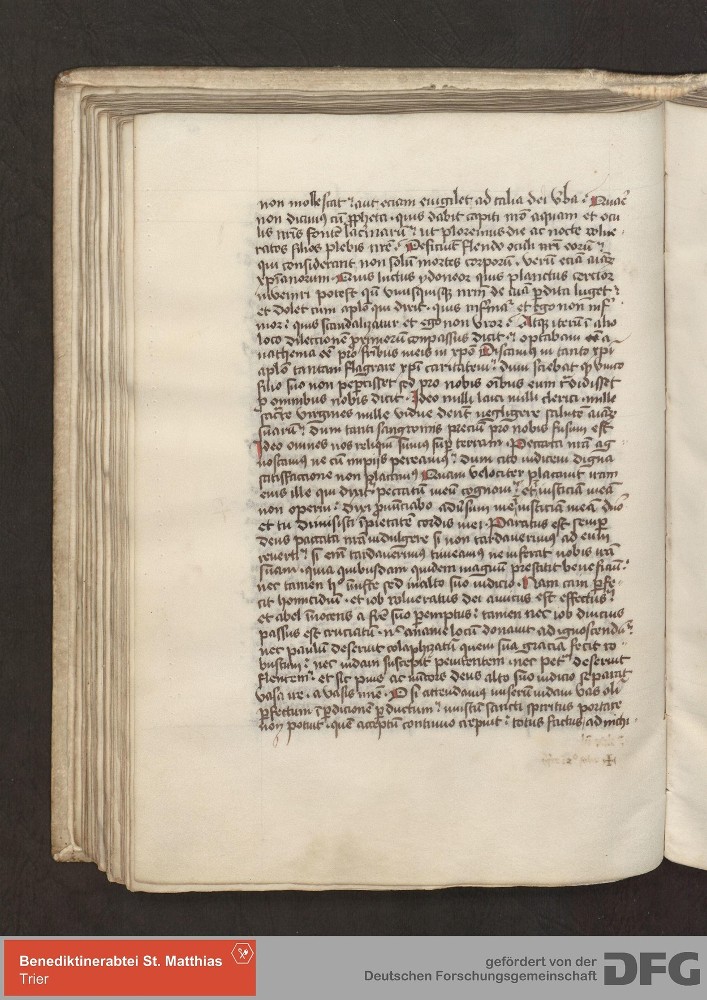 non mollescat? aut etiam euigilet ad talia dei vba? Quare
non dicimus cū ꝓpheta. quis dabit capiti meo aquam et ocu
lis meis fontē lacrimarū? ut ploremus die ac nocte vulne
ratos filios plebis nrē. Defitiunt flendo oculi nrī eorū?
qui considerant non solū mortes corporū. verū etiā aīarū
xp̄ianorum. Cuius luctus ydoneor quis planctus certior
inveniri potest qū vnusquisq; nrm̄ de sua ꝑdita luget?
et dolet cum aplō qui dixit. quis infirmat̉ et ego non infir
mor? quis scandalizatur et ego non vror? Atq; iterū ī alio
loco dilectionem proximorū compassus dicit? optabam a
nathema eē pro fribus meis in xpō Discamus in tanto xpi
aplō tantam flagrare xpī caritatem? dum sciebat q vnico
filio suo non pepercisset sed pro nobis oībus eum tradidisset
ꝑ omnibus nobis dicit. Ideo nulli laici nulli clerici. nulle
sacre virgines nulle vidue debent negligere salutē aīarū
suarū? dum tanti sanguinis precium pro nobis fusum est
Ideo omnes nos reliqui sumus suꝑ terram. Peccata nrā ag
noscamus ne cū impijs pereamus? dum cito iudicem digna
satisfactione non placamus Quam velociter placauit iram
eius ille qui dixit peccatū meū cognoui? et iniusticiā meā
non operui? Dixi pronūciabo aduersum me iniusticiā meā dn̄o
et tu dimisisti īpietatē cordis mei. Paratus est semper
deus peccata nrā indulgere si non tardauerimus ad eum
reuerti? si enī tardauerimus timeamus ne inferat nobis irā
suam. quia quibusdam quidem magnū prestitit beneficiū?
nec tamen hoc iniuste sed in alto suo iudicio. Nam cum perfe
cit homicidiū. et iob vulneratus dei amicus est effectus?
et abel inocens a frē suo ꝑemptus? tamen nec iob diucius
passus est cruciatū. nec caīme locū donauit ad ignoscendū?
nec paulū deseruit colaphizatū quem sua gracia fecit ro
bustum? nec iudam suscepit penitentem. nec petrū deseruit
flentem? et sic pius ac iustus deus alto suo iudicio separauit
vasa ire. a vasis mīe. O si attendamus miserū iudam vas oli
ꝑfectum ī ꝑdicionē ꝑductum? iustiā sancti spiritus portare
non potuit. quē acceptū continuo crepuit? totus factus ad nichi
Benediktinerabtei St. Matthias
Trier
gefördert von der
Deutschen Forschungsgemeinschaft
DFG